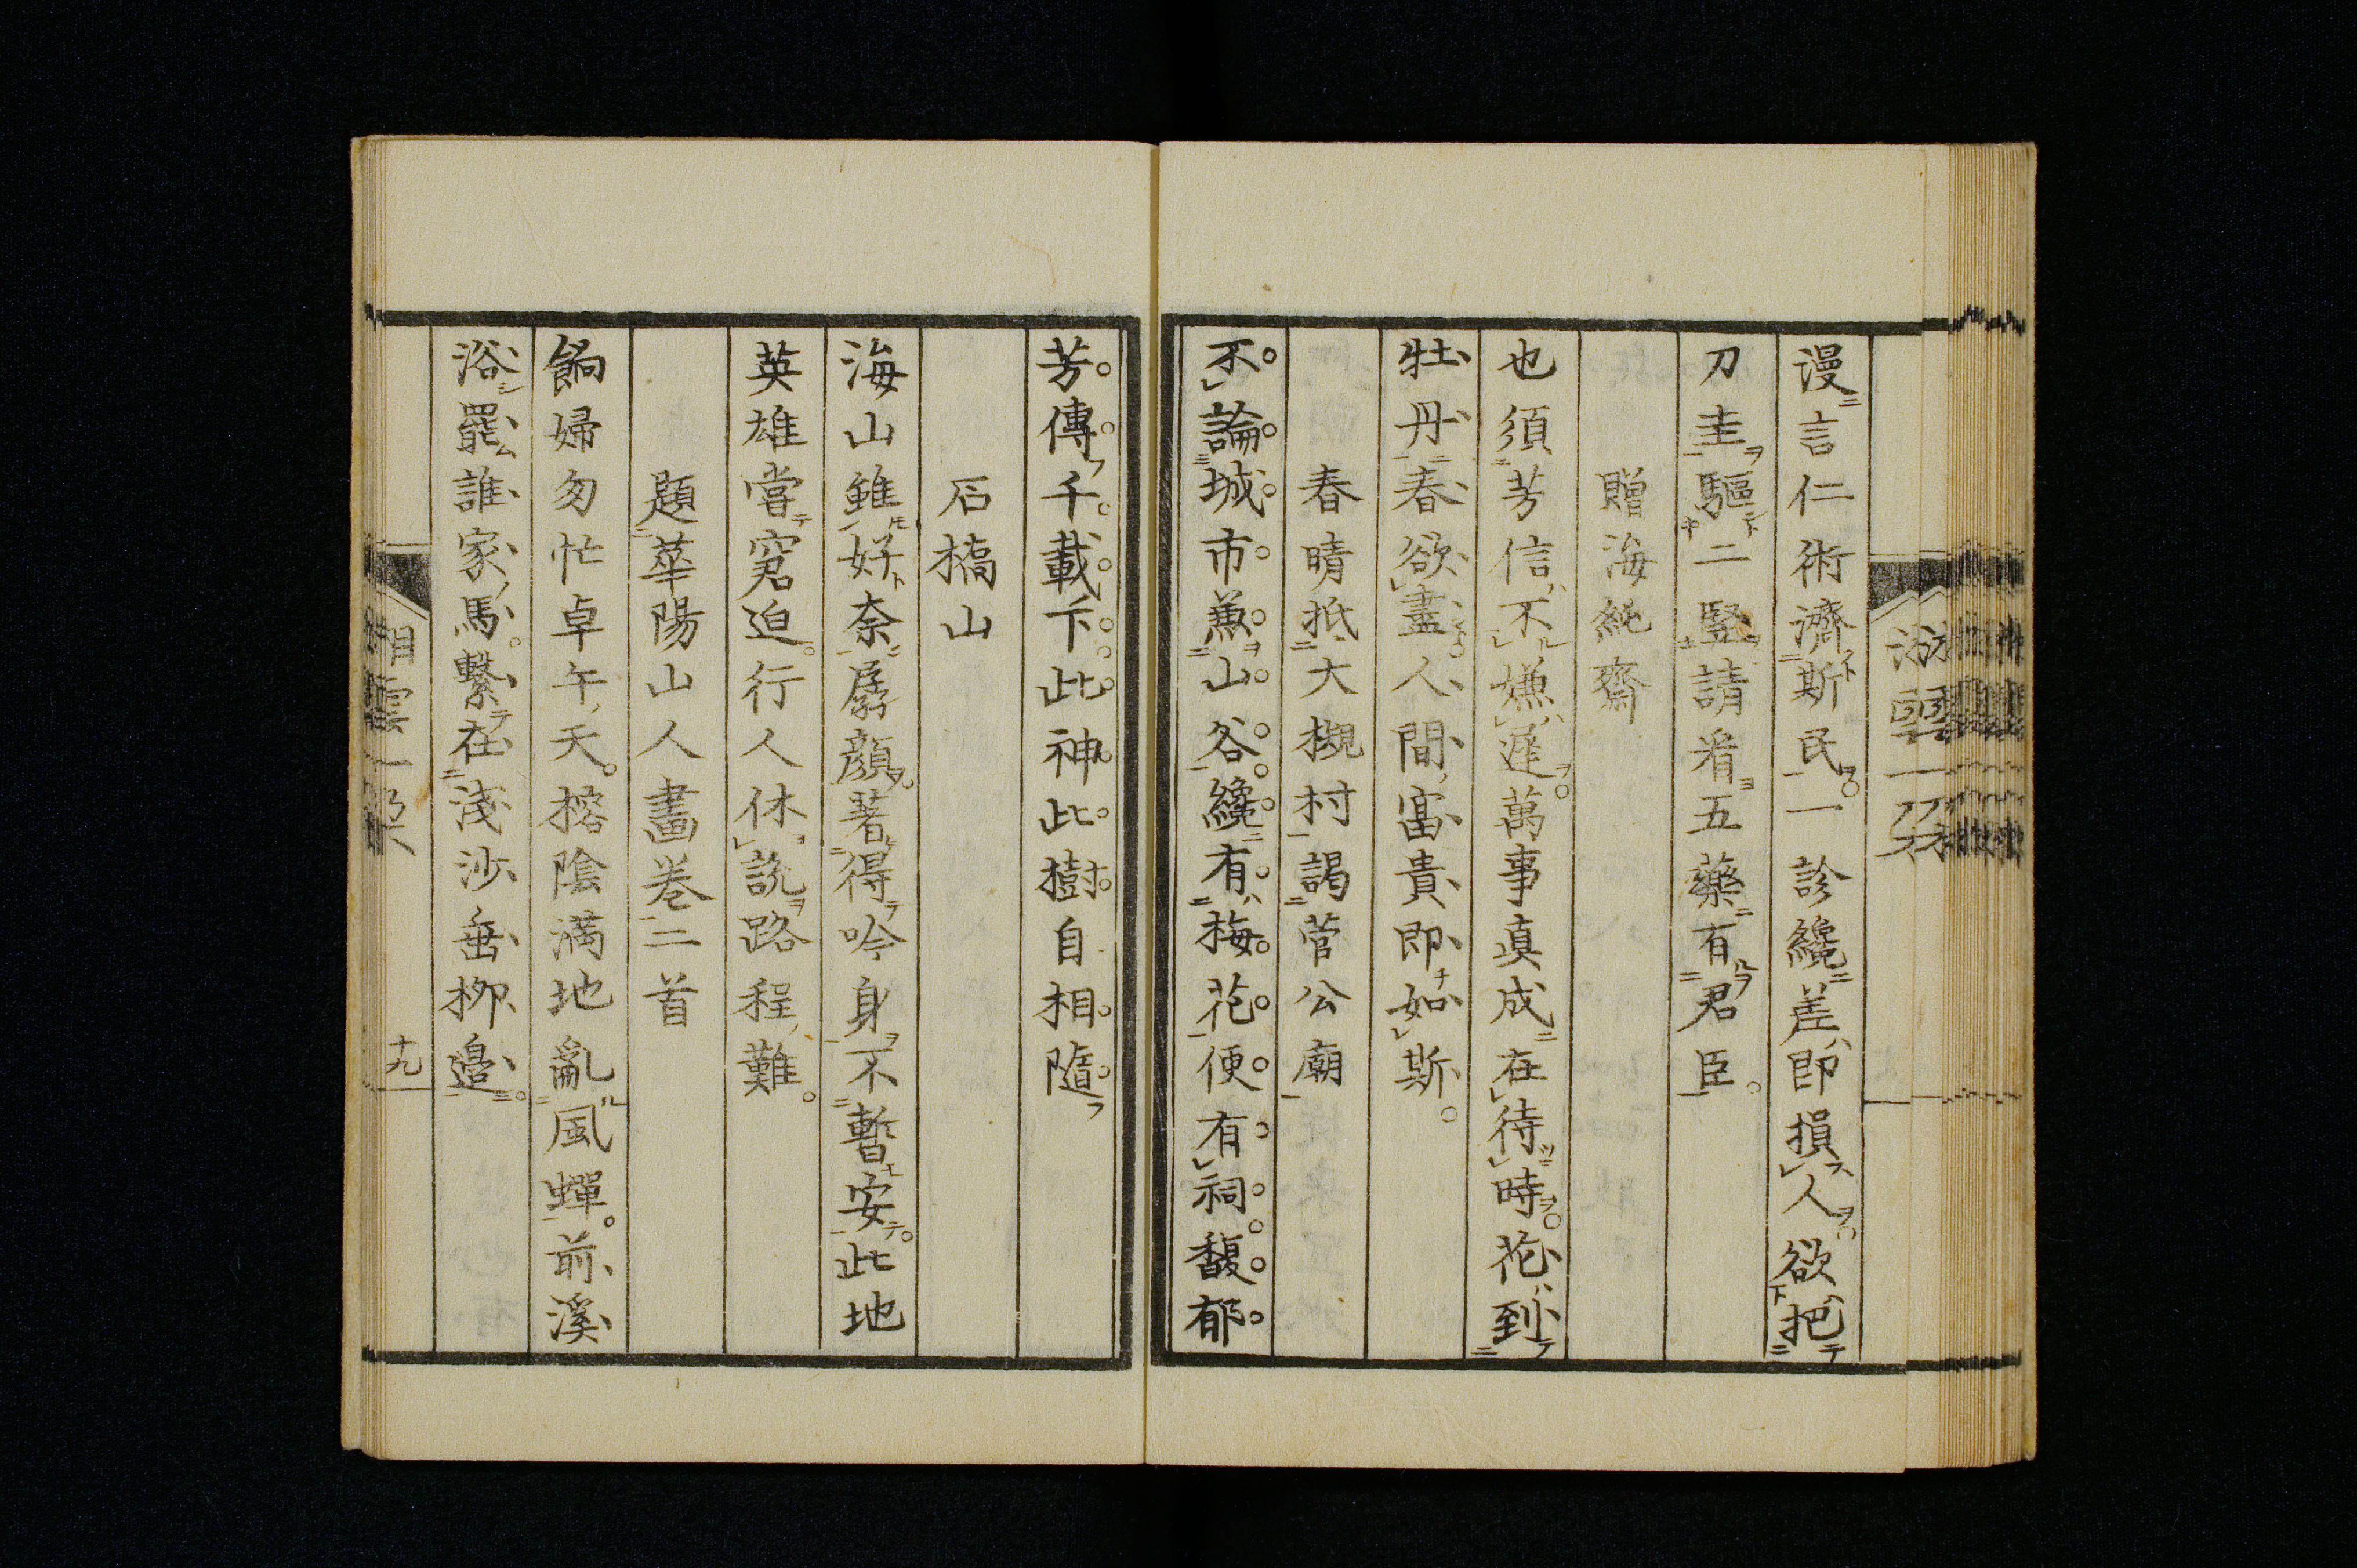 漫言仁術濟斯民一診纔差即損人欲把
刀圭驅二竪請看五藥有君臣
贈海純齋
也須芳信不嫌遲萬事真成在待時花到
牡丹春欲盡人間富貴即如斯
春晴抵大槻村謁菅公廟
不論城市兼山谷纔有梅花便有祠馥郁
芳傳千載下此神此樹自相隨
石橋山
海山雖好奈孱顔著得吟身不暫安此地
英雄嘗窘迫行人休說路程難
題華陽山人畫卷二首
餉婦匆忙卓午天榕陰滿地亂風蟬前溪
浴罷誰家馬繫在淺沙垂柳邉
十九